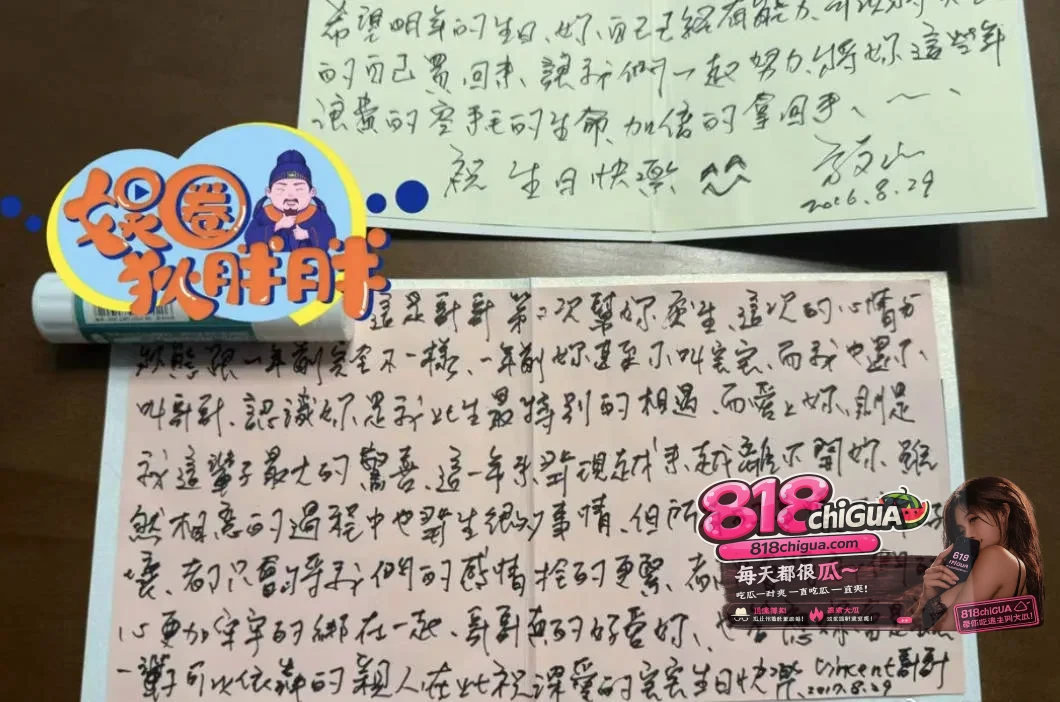 希望明年的生日、妳、自己已經有能力、可以將
的自己買回來、讓我們一起努力、將妳這些年
浪費的空手毛的生命、加倍的拿回手、
祝 生日快樂 ^^
2016.8.29
娛圈
狄胖胖
這是哥哥第二次幫妳慶生、這次的心情和
狀態跟一年前完全不一樣、一年前妳甚至不叫寶寶、而我也還不
叫哥哥、認識妳是我此生最特別的相遇、而愛上妳、則是
我這輩子最大的驚喜、這一年來發現越來越離不開妳、雖
然相戀的過程中也發生很多事情、但所
壞、都只會將我們的感情拴的更緊、
心更加牢牢的綁在一起、哥哥真的好愛妳、
一輩子可以依靠的親人在此祝深愛的寶寶生日快樂 Vincent哥哥
2017.8.29
818chiGUA
818chigua.com
每天都很瓜~
吃瓜一时爽 一直吃瓜一直爽!
818
818chiGUA